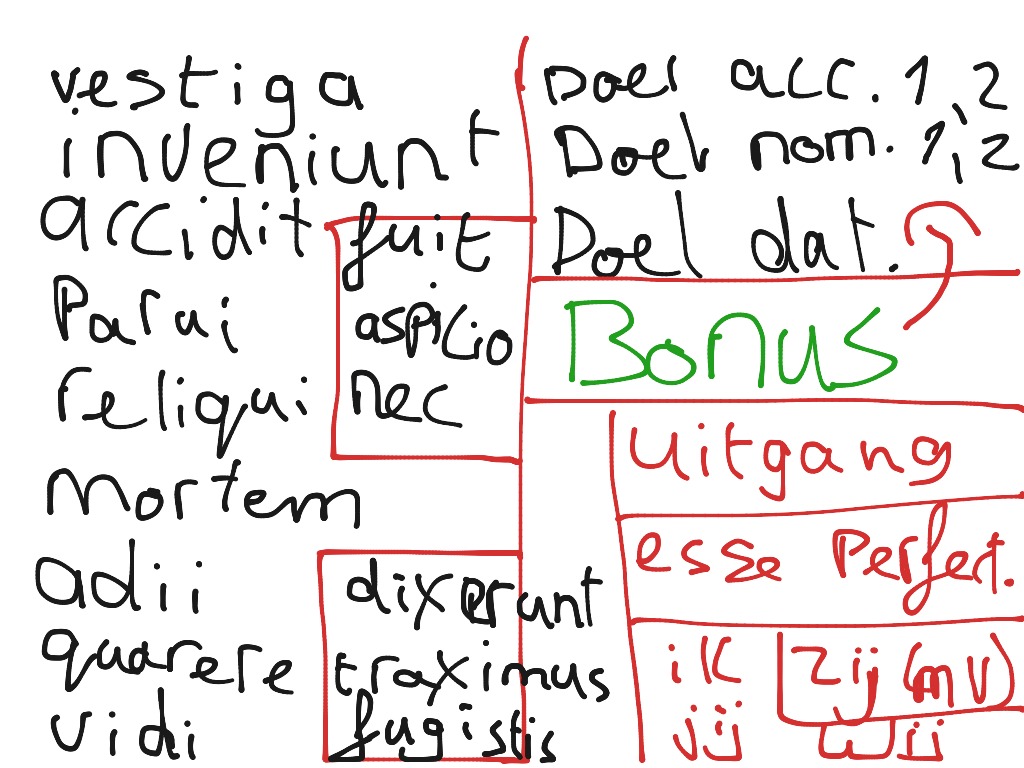 vestiga
inveniunt
accidit
Parui
reliqui
mortem
adii
quarere
vidi
fuit
aspicio
nec
dixerunt
traximus
fugistis
Doel acc. 1,2
Doel nom. 1,2
Doel dat.
Bonus
Uitgang
esse Perfect.
ik zij (mv)
jij wij